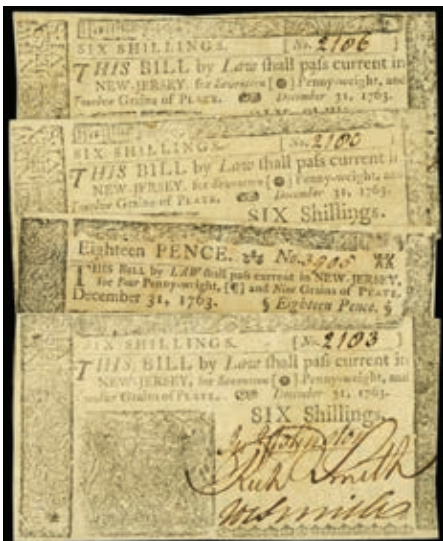 SIX SHILLINGS. [No. 2106 ]
THIS BILL by Law ſhall paſs current in
NEW-JERSEY, for Seventeen [ ] Penny-weight, and
Grains of PLATE. December 31, 1763.
SIX SHILLINGS. [No. 2100 ]
THIS BILL by Law ſhall paſs current in
NEW-JERSEY, for Seventeen [ ] Penny-weight, and
Grains of PLATE. December 31, 1763.
SIX Shillings.
Eighteen PENCE. No. 3905
THIS Bill by LAW ſhall paſs current in NEW-JERSEY,
for Four Penny-weight, [¶] and Nine Grains of PLATE.
December 31, 1763. § Eighteen Pence. §
SIX SHILLINGS. [No. 2103 ]
THIS BILL by Law ſhall paſs current in
NEW-JERSEY, for Seventeen [ ] Penny-weight, and
Grains of PLATE. December 31, 1763.
SIX Shillings.
Johnston
Rich Smith